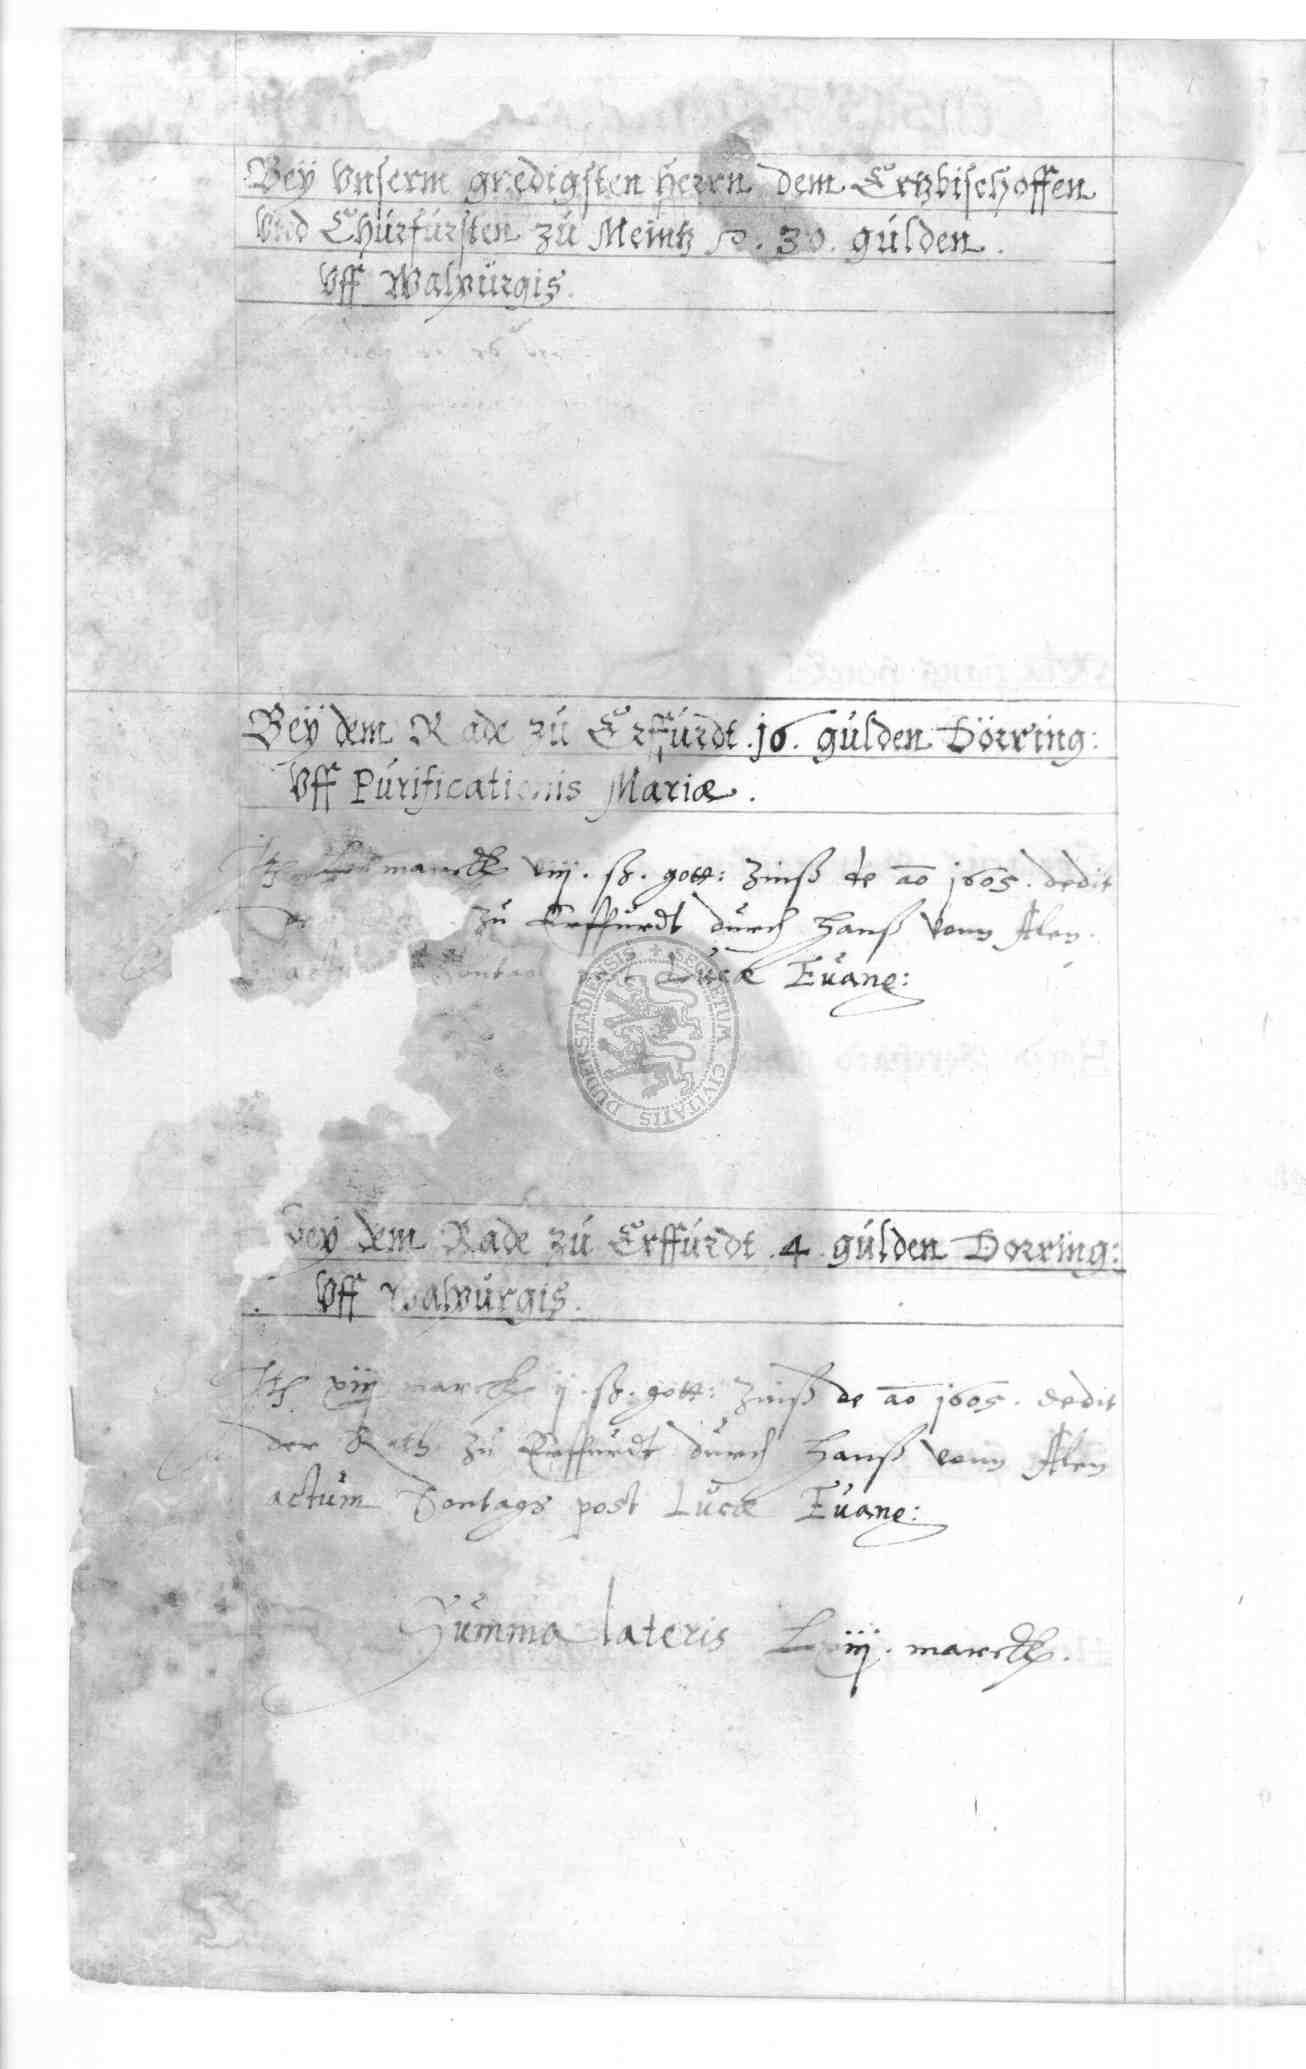 Beÿ vnserm gnedigsten Herrn dem Ertzbischoffen
vnd Churfürsten zu Meintz 30. gulden.
Vff Walpurgis.
Beÿ dem Rade zu Erffurdt .j6. gulden Dörring:
Vff Purificationis Mariæ.
marck viij. ß. gott: Zinß de ao j605. dedit
zu Erffurdt durch Hanß vonn Alen.
Sontags post Lucæ Euang:
SECRETUM CIVITATIS DUDERSTADIENSIS
Bey dem Rade zu Erffurdt .4. gulden Dorring:
Vff Walpurgis.
It xiij marck ij. ß. gott: Zinß de ao j605. dedit
der Rath zu Erffurdt durch Hanß vonn Alen
actum Sontags post Lucæ Euang:
Summa lateris marck.